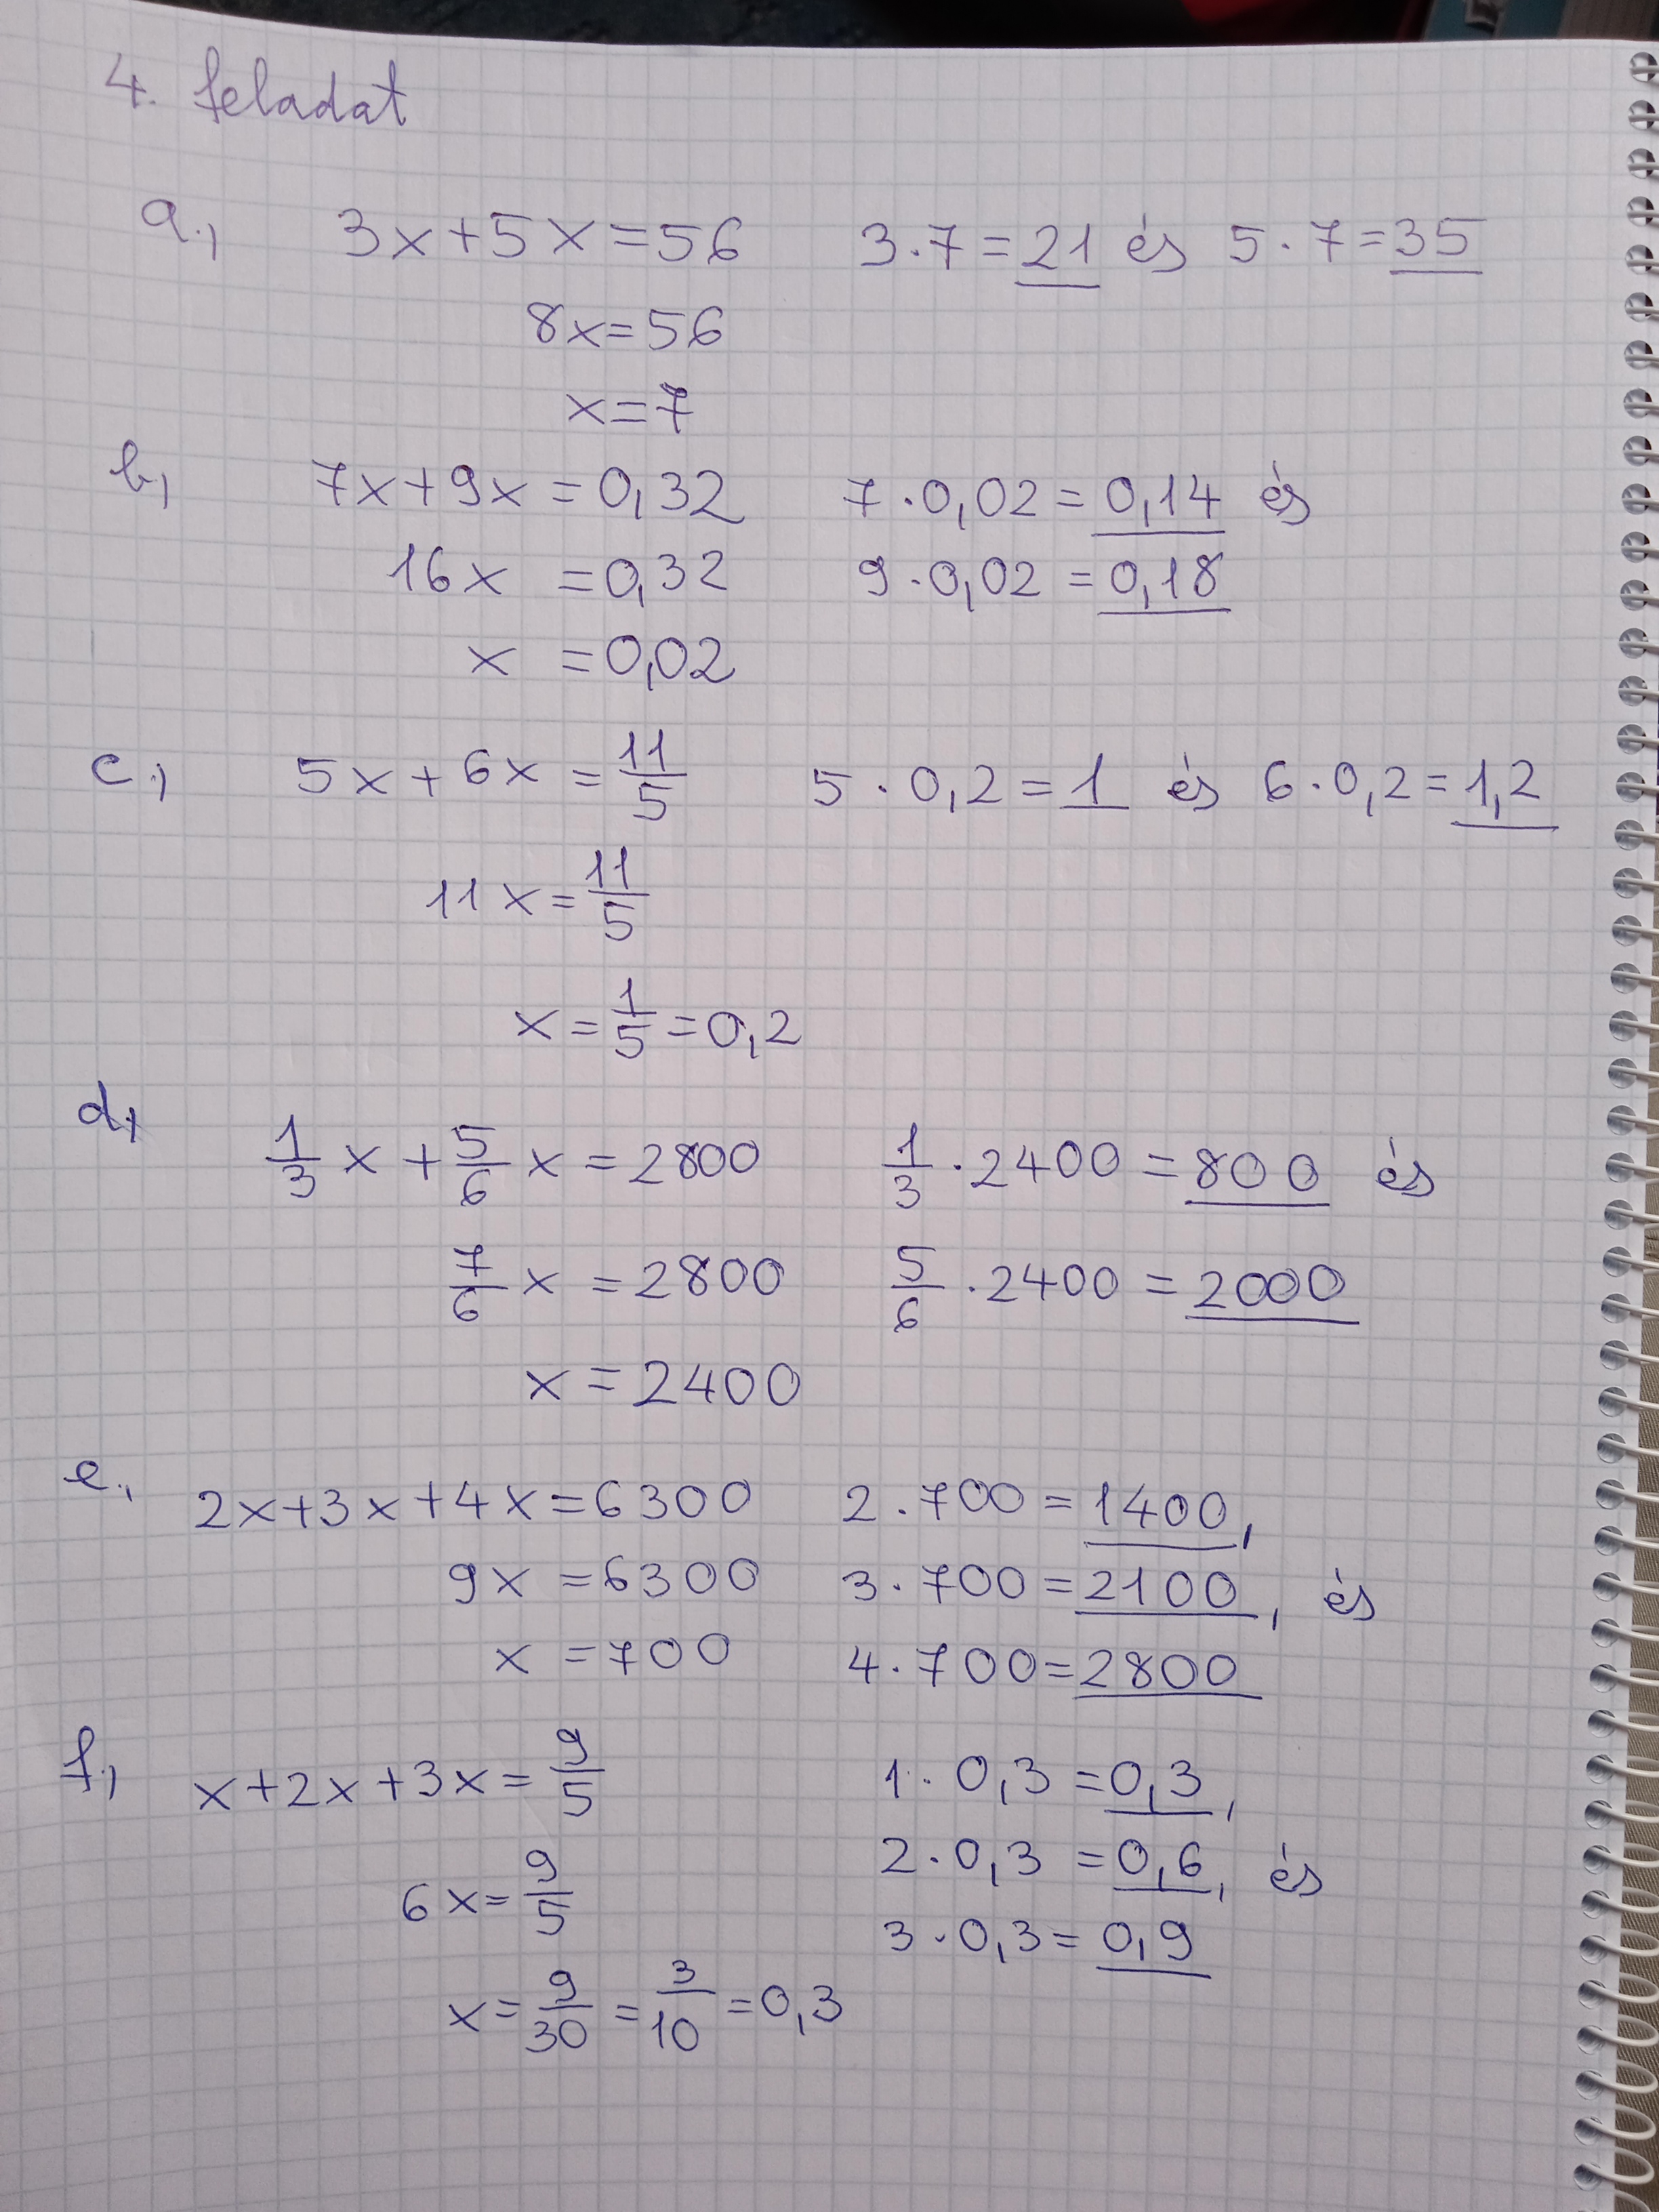 4. feladat
a., 3x+5x=56 3·7=21 és 5·7=35
8x=56
x=7
b, 7x+9x=0,32 7·0,02=0,14 és
16x =0,32 9·0,02=0,18
x =0,02
c., 5x+6x=11/5 5·0,2=1 és 6·0,2=1,2
11x=11/5
x=1/5=0,2
d, 1/3 x+5/6 x=2800 1/3·2400=800 és
7/6 x=2800 5/6·2400=2000
x=2400
e., 2x+3x+4x=6300 2·700=1400,
9x=6300 3·700=2100, és
x=700 4·700=2800
f., x+2x+3x=9/5 1·0,3=0,3,
6x=9/5 2·0,3=0,6, és
3·0,3=0,9
x=9/30=3/10=0,3